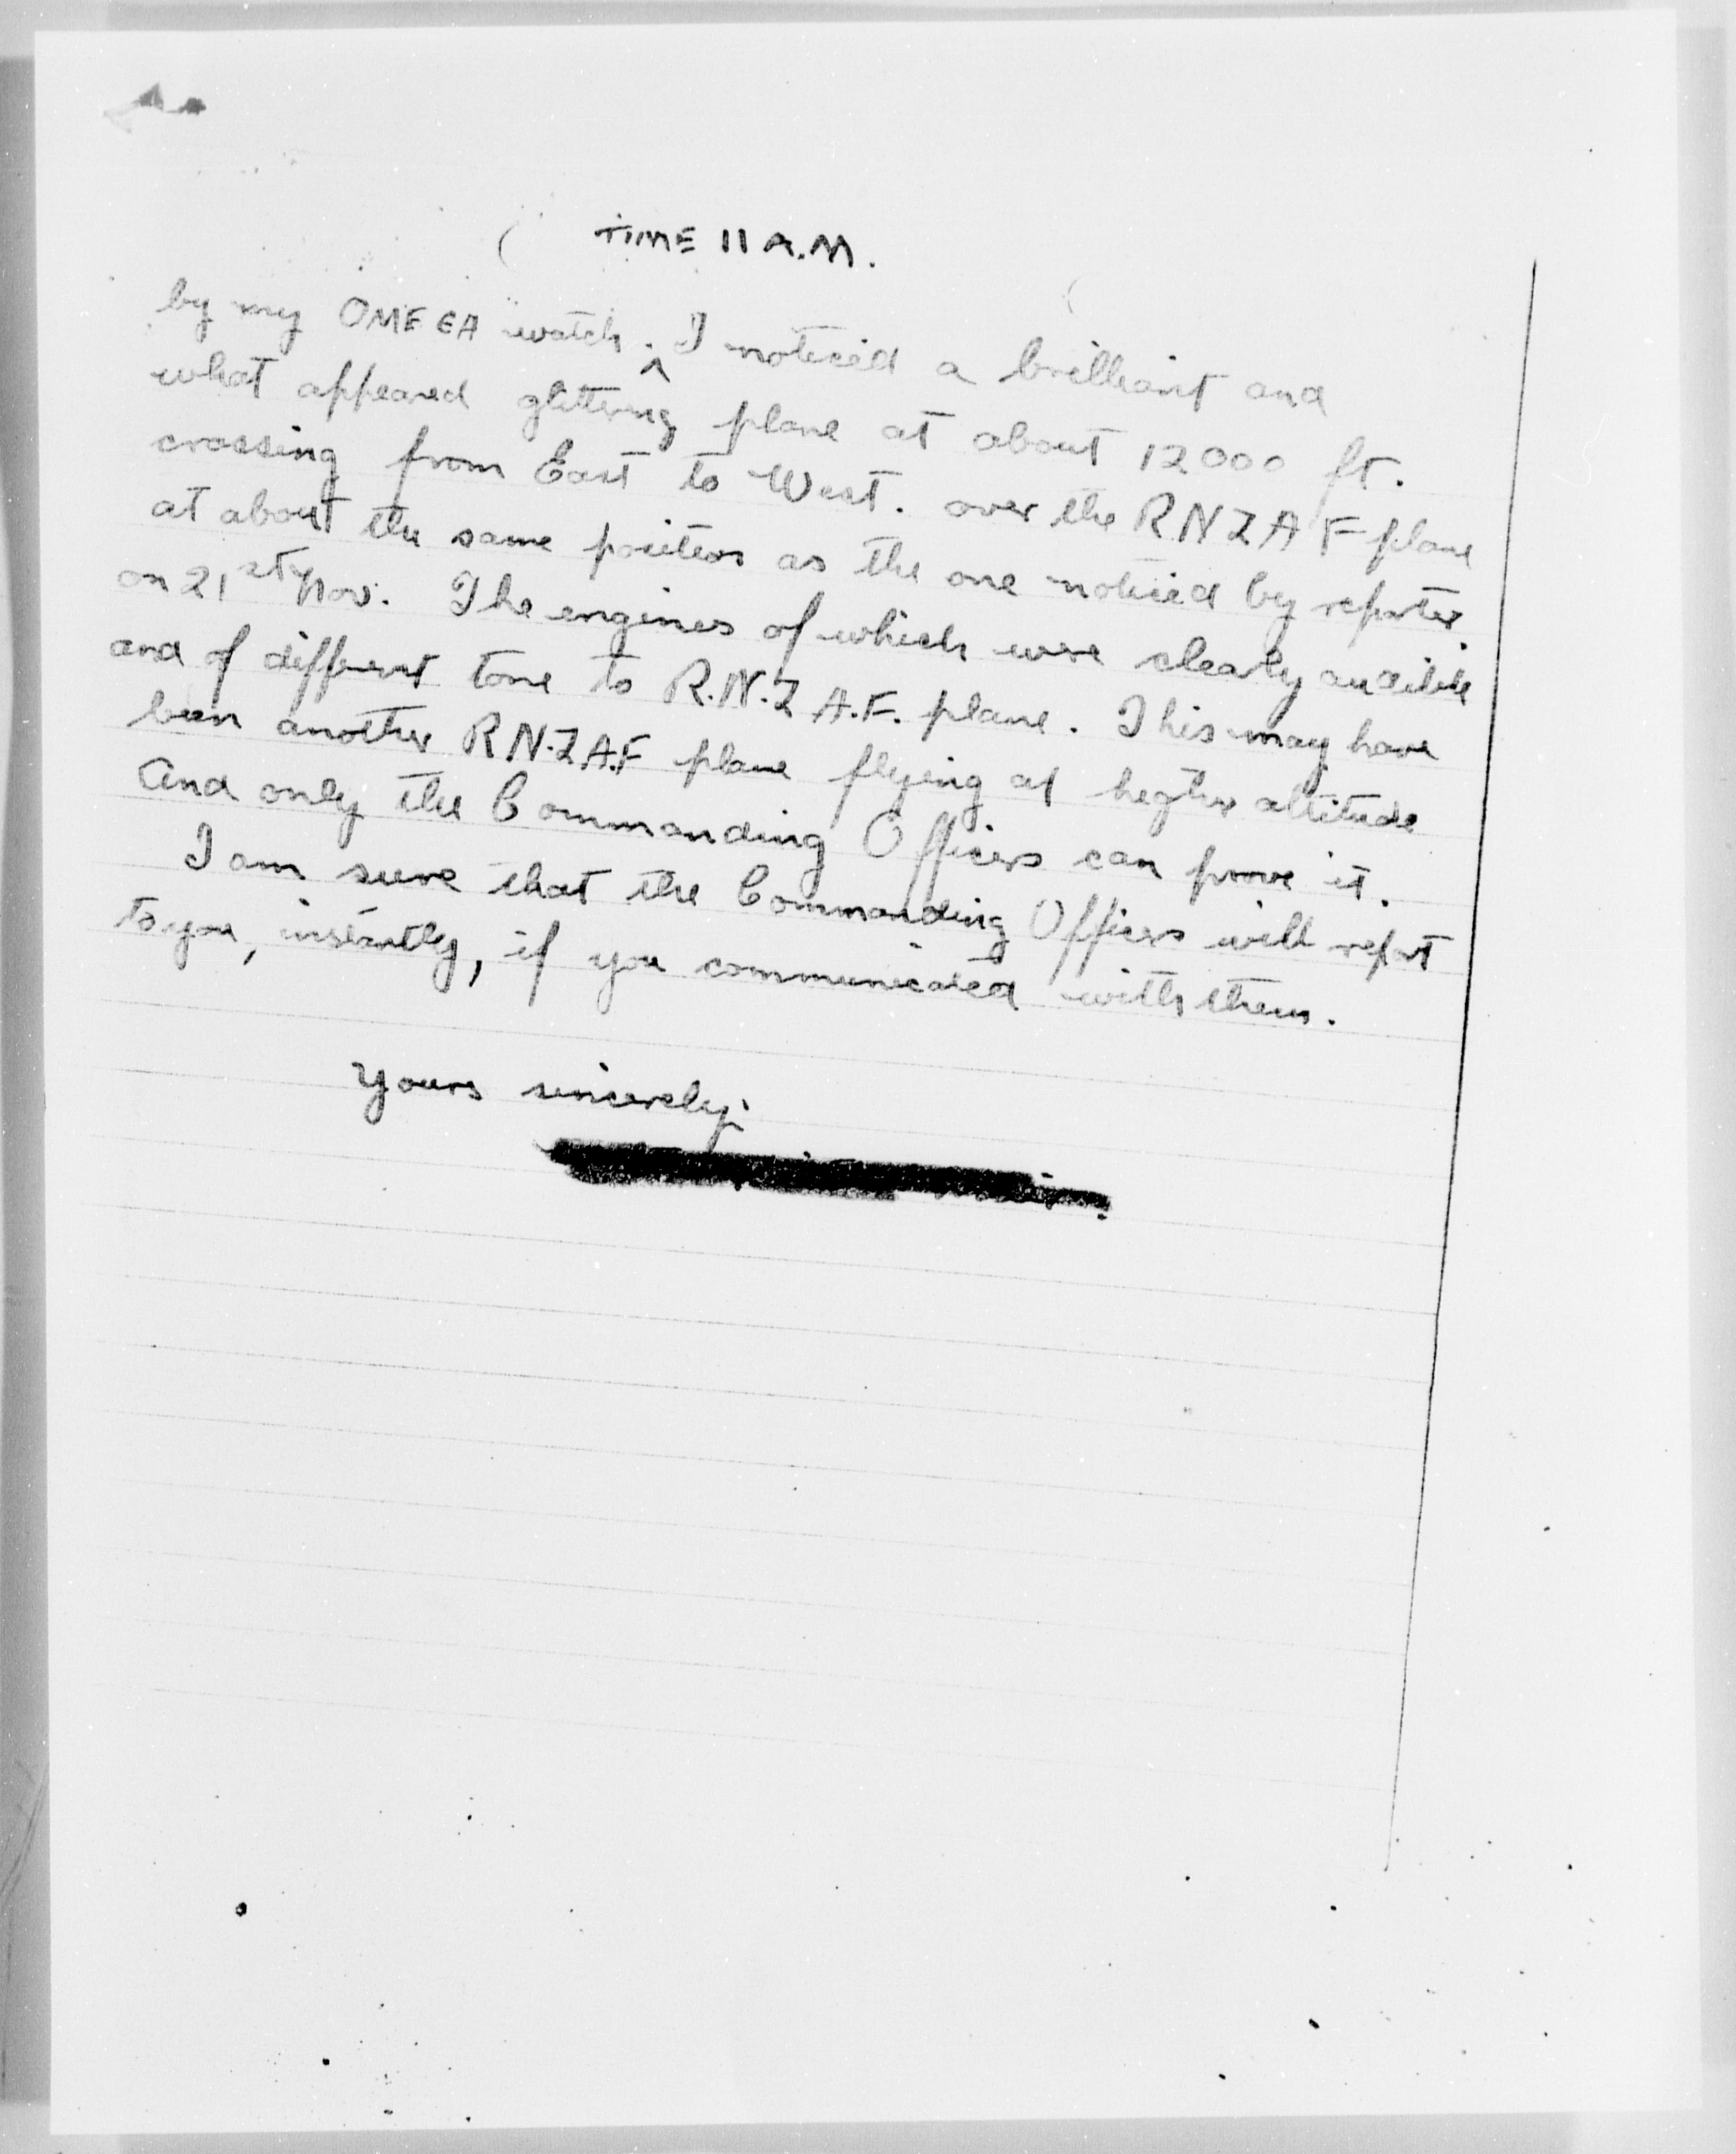 TIME 11 A.M.
by my OMEGA watch. ^ I noticed a brilliant and
what appeared glittering plane at about 12000 ft.
crossing from East to West. over the RNZAF plane
at about the same position as the one noticed by reporter.
on 21st Nov. The engines of which were clearly audible
and of different tone to R.N.Z A.F. plane. This may have
been another RN.ZA.F plane flying at higher altitude
And only the Commanding Officers can prove it.
I am sure that the Commanding Officers will report
to you, instantly, if you communicated with them.
Yours sincerely,